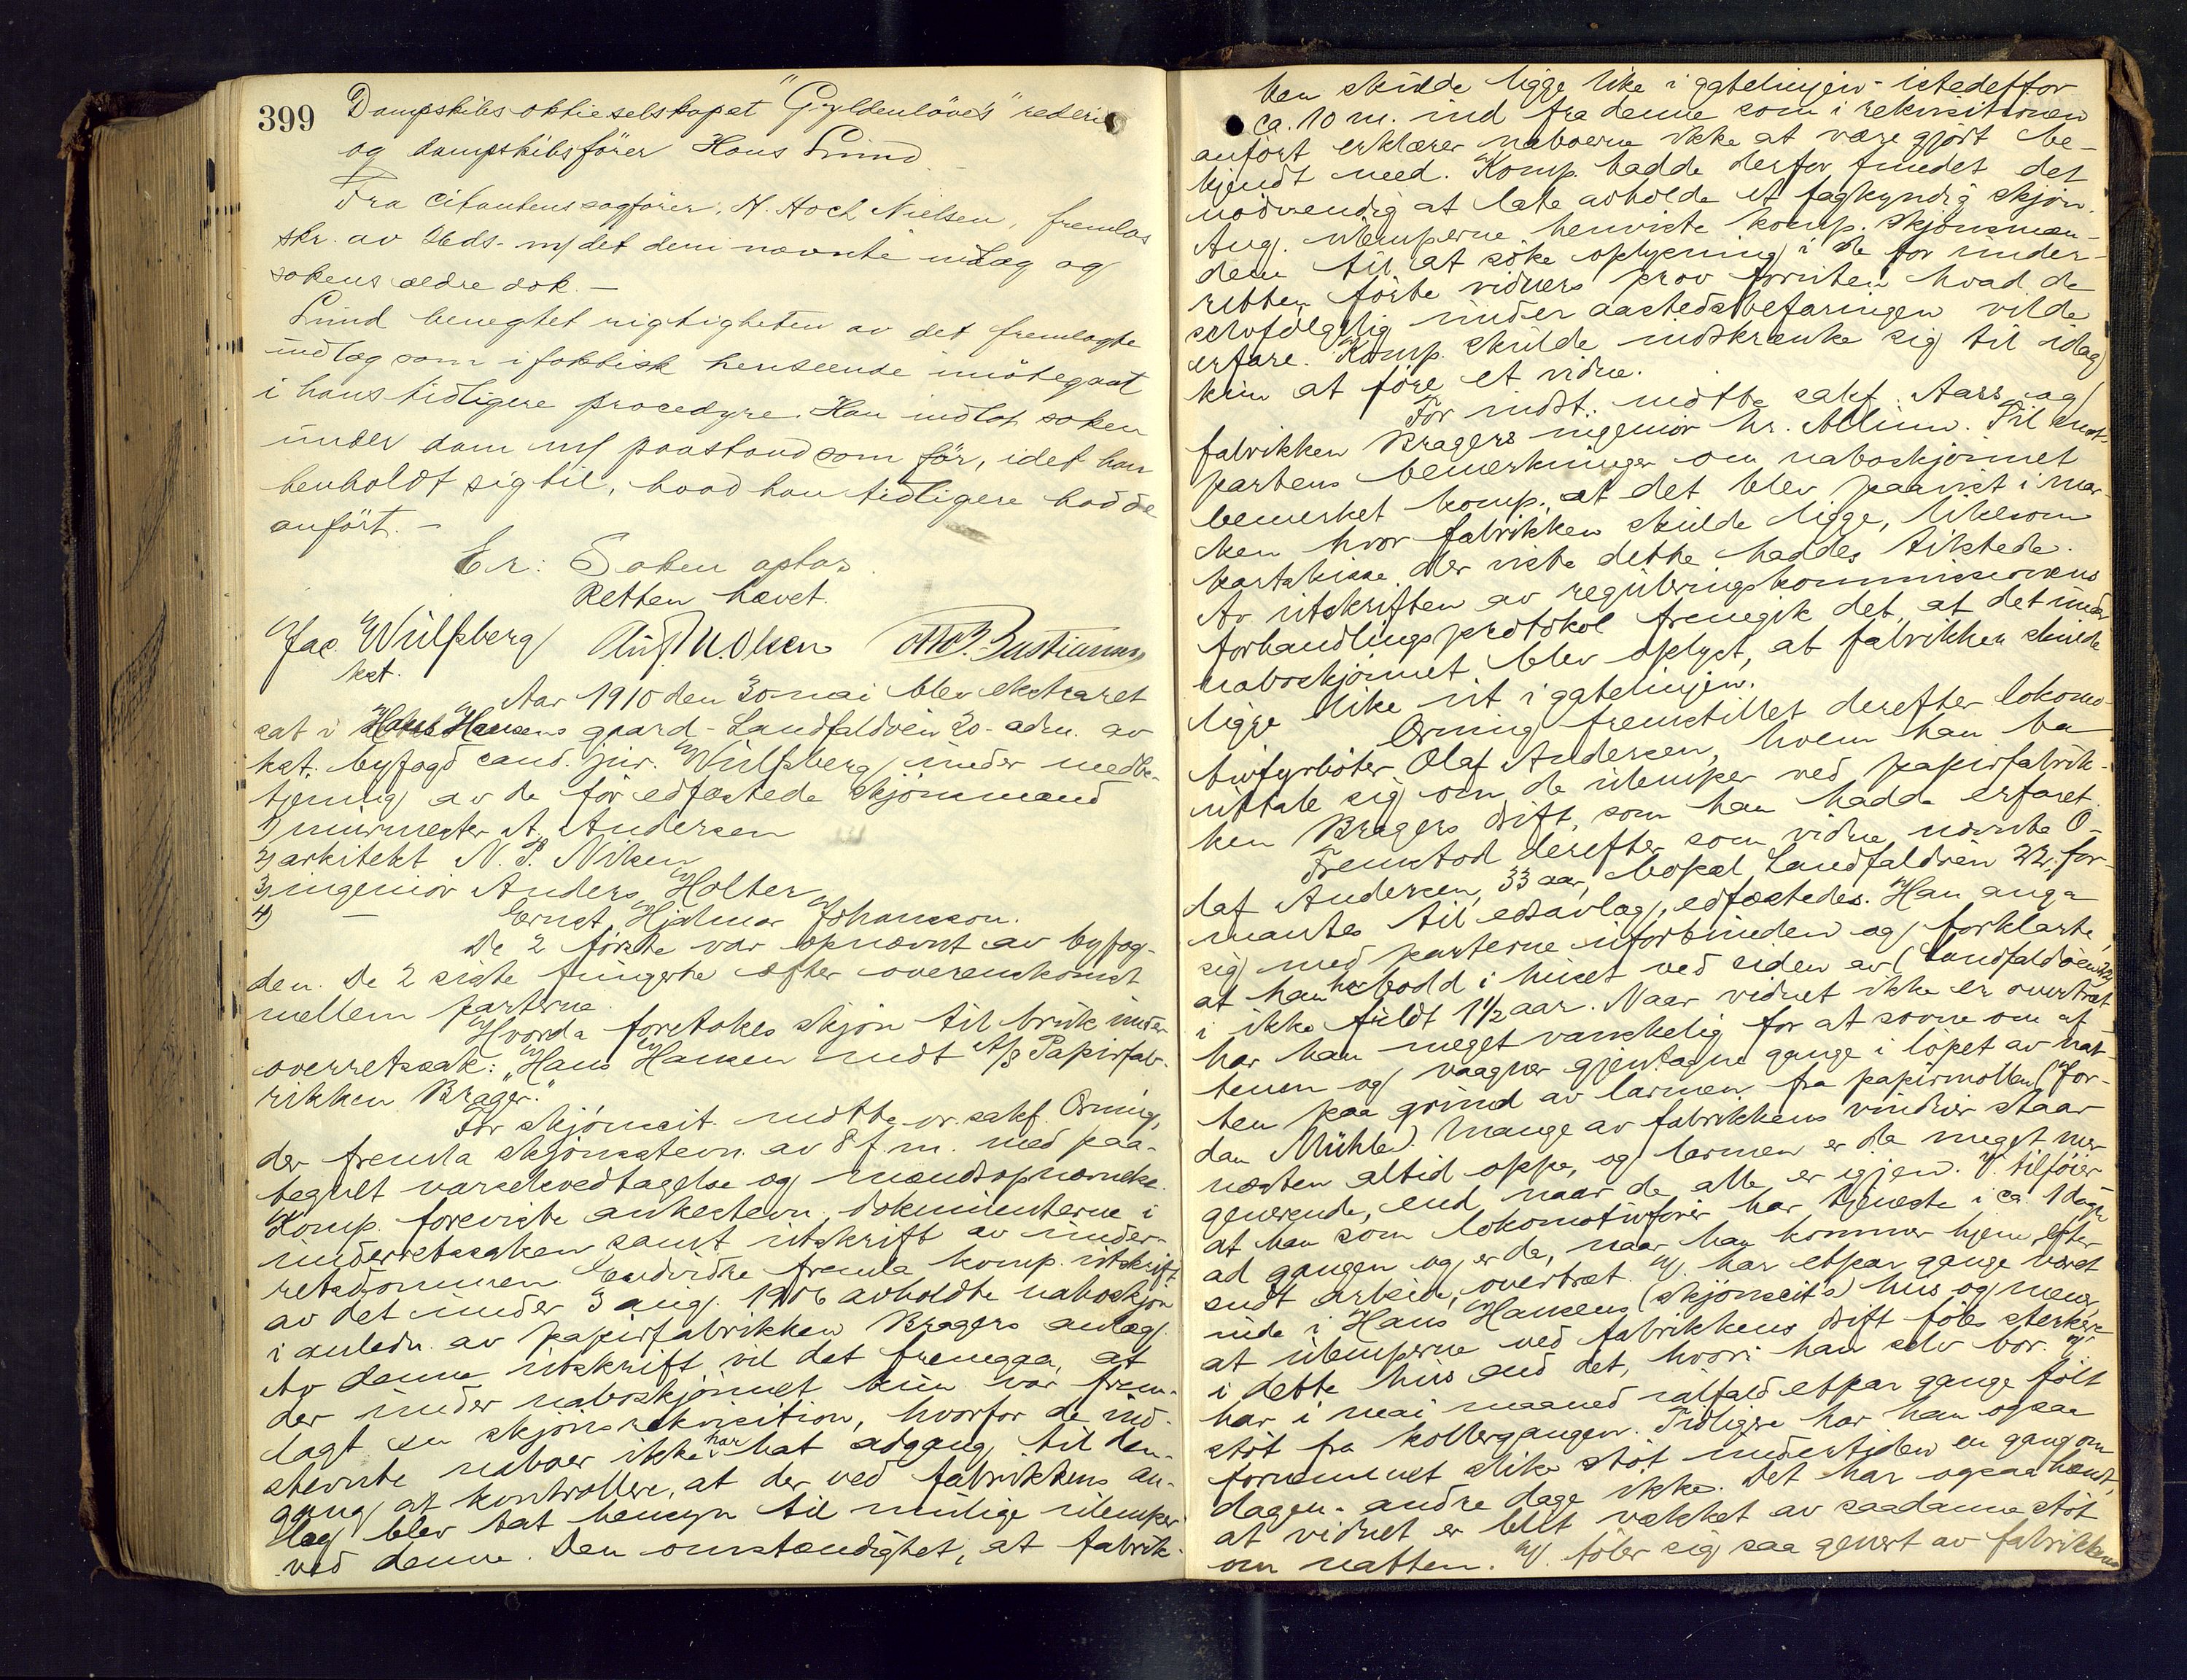 399
Dampskibsaktieselskapet "Gyldenlöve's" rederi
og dampskibsförer Hans Lund
Fra citantens sagförer, N. Hoch Nielsen, fremlas
skr. av 26ds. m/ det deri nævnte indlæg og
sakens ældre dok. -
Lund benegtet rigtigheten av det fremlagte
indlæg som i faktisk henseende imötegaat
i hans tidligere procedyre. Han indlot saken
under dom m/ paastand som för, idet han
henholdt sig til, hvad han tidligere hadde
anfört. -
Er: Saken optas.
Retten hævet.
Jac. Wulfsberg Aug. M. Olsen Bastiansen
kst.
Aar 1910 den 30 mai blev ekstraret
sat i Hans Hansens gaard - Landfaldöien 20 - adm. av
kst. byfogd cand. jur. Wulfsberg under medbe-
tjening av de för edfæstede skjönsmænd
1) murmester A. Andersen
2) arkitekt N. P. Nilsen
3) ingeniör Anders Holter
4) — Ernst Hjalmar Johansson.
De 2 förste var opnævnt av byfog-
den. De 2 siste fungerte efter overenskomst
mellem parterne.
Hvorda foretokes skjön til bruk under
overretssak: "Hans Hansen mot A/S Papirfab-
rikken Brager."
For skjönscit. mötte or. sakf. Orning,
der fremla skjönsstevn. av 8 f. m. med paa-
tegnet varselsvedtagelse og mandsopnævnelse.
Komp. foreviste ankestevn. dokumenterne i
underretssaken samt utskrift av under-
retsdommen. Endvidre fremla komp. utskrift
av det under 3 aug. 1906 avholdte naboskjön
i anledn. av papirfabrikken Bragers anlæg.
Av denne utskrift vil det fremgaa, at
der under naboskjönnet kun var frem-
lagt en skjönsrekvisition, hvorfor de ind-
stevnte naboer ikke har hat adgang til den-
gang at kontrollere, at der ved fabrikkens an-
læg blev tat hensyn til mulige ulemper
ved denne. Den omstændighet, at fabrik-
ken skulde ligge like i gatelinjen - istedetfor
ca. 10 m. ind fra denne som i rekvisitionen
anfört erklærer naboerne ikke at være gjort be-
kjendt med. Komp. hadde derfor fundet det
nödvendig at late avholde et fagkyndig skjön.
Ang. ulemperne henviste komp. skjönsmæn-
dene til at söke oplysning i de for under-
retten förte vidners prov foruten hvad de
selvfölgelig under aastedsbefaringen vilde
erfare. Komp. skulde indskrænke sig til idag
kun at före et vidne.
For indst. mötte sakf. Aars og
fabrikken Bragers ingeniör hr. Allum. Til mot-
partens bemerkninger om naboskjönnet
bemerket komp., at det blev paavist i mar-
ken hvor fabrikken skulde ligge, likesom
kartskisse der viste dette haddes tilstede.
Av utskriften av reguleringskommissionens
forhandlingsprotokol fremgik det, at det under
naboskjönnet blev oplyst, at fabrikken skulde
ligge like ut i gatelinjen.
Orning fremstillet derefter lokomo-
tivfyrböter Olaf Andersen, hvem han ba
uttale sig om de ulemper ved papirfabrik-
ken Bragers drift, som han hadde erfaret.
Fremstod derefter som vidne nævnte O-
laf Andersen, 33 aar, bopæl Landfaldöien 22, for-
mantes til edsavlæg, edfæstedes. Han anga
sig med parterne uforbunden og forklarte,
at han har bodd i huset ved siden av (Landfaldöien 22)
i ikke fuldt 1½ aar. Naar vidnet ikke er overtræt
har han meget vanskelig for at sovne om af-
tenen og vaagner gjentagne gange i löpet av nat-
ten paa grund av larmen fra papirmöllen (Jor-
dan Mühle). Mange av fabrikkens vinduer staar
næsten altid oppe, og larmen er da meget mer
generende, end naar de alle er igjen. V. tilföier
at han som lokomotivförer har tjeneste i ca. 1 dögn
ad gangen og er da, naar han kommer hjem efter
endt arbeide, overtræt. V. har etpar gange været
inde i Hans Hansens (skjönscit's) hus og mener,
at ulemperne ved fabrikkens drift föles sterkere
i dette hus end det, hvori han selv bor. V.
har i mai maaned ialfald etpar gange fölt
stöt fra kollergangen. Tidligere har han ogsaa
fornemmet slike stöt undertiden en gang om
dagen - andre dage ikke. Det har ogsaa hændt,
at vidnet er blit vækket av saadanne stöt
om natten. V. föler sig saa genert av fabrikkens